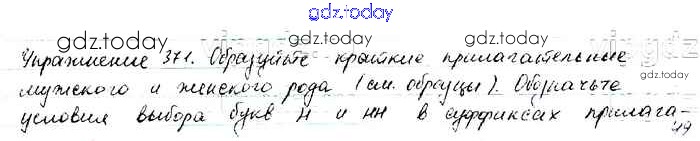 gdz.today
gdz.today gdz.today
Упражнение 371. Образуйте краткие прилагательные
мужского и женского рода (см. образцы). Обозначьте
gdz.today
условия выбора букв н и нн в суффиксах прилага-